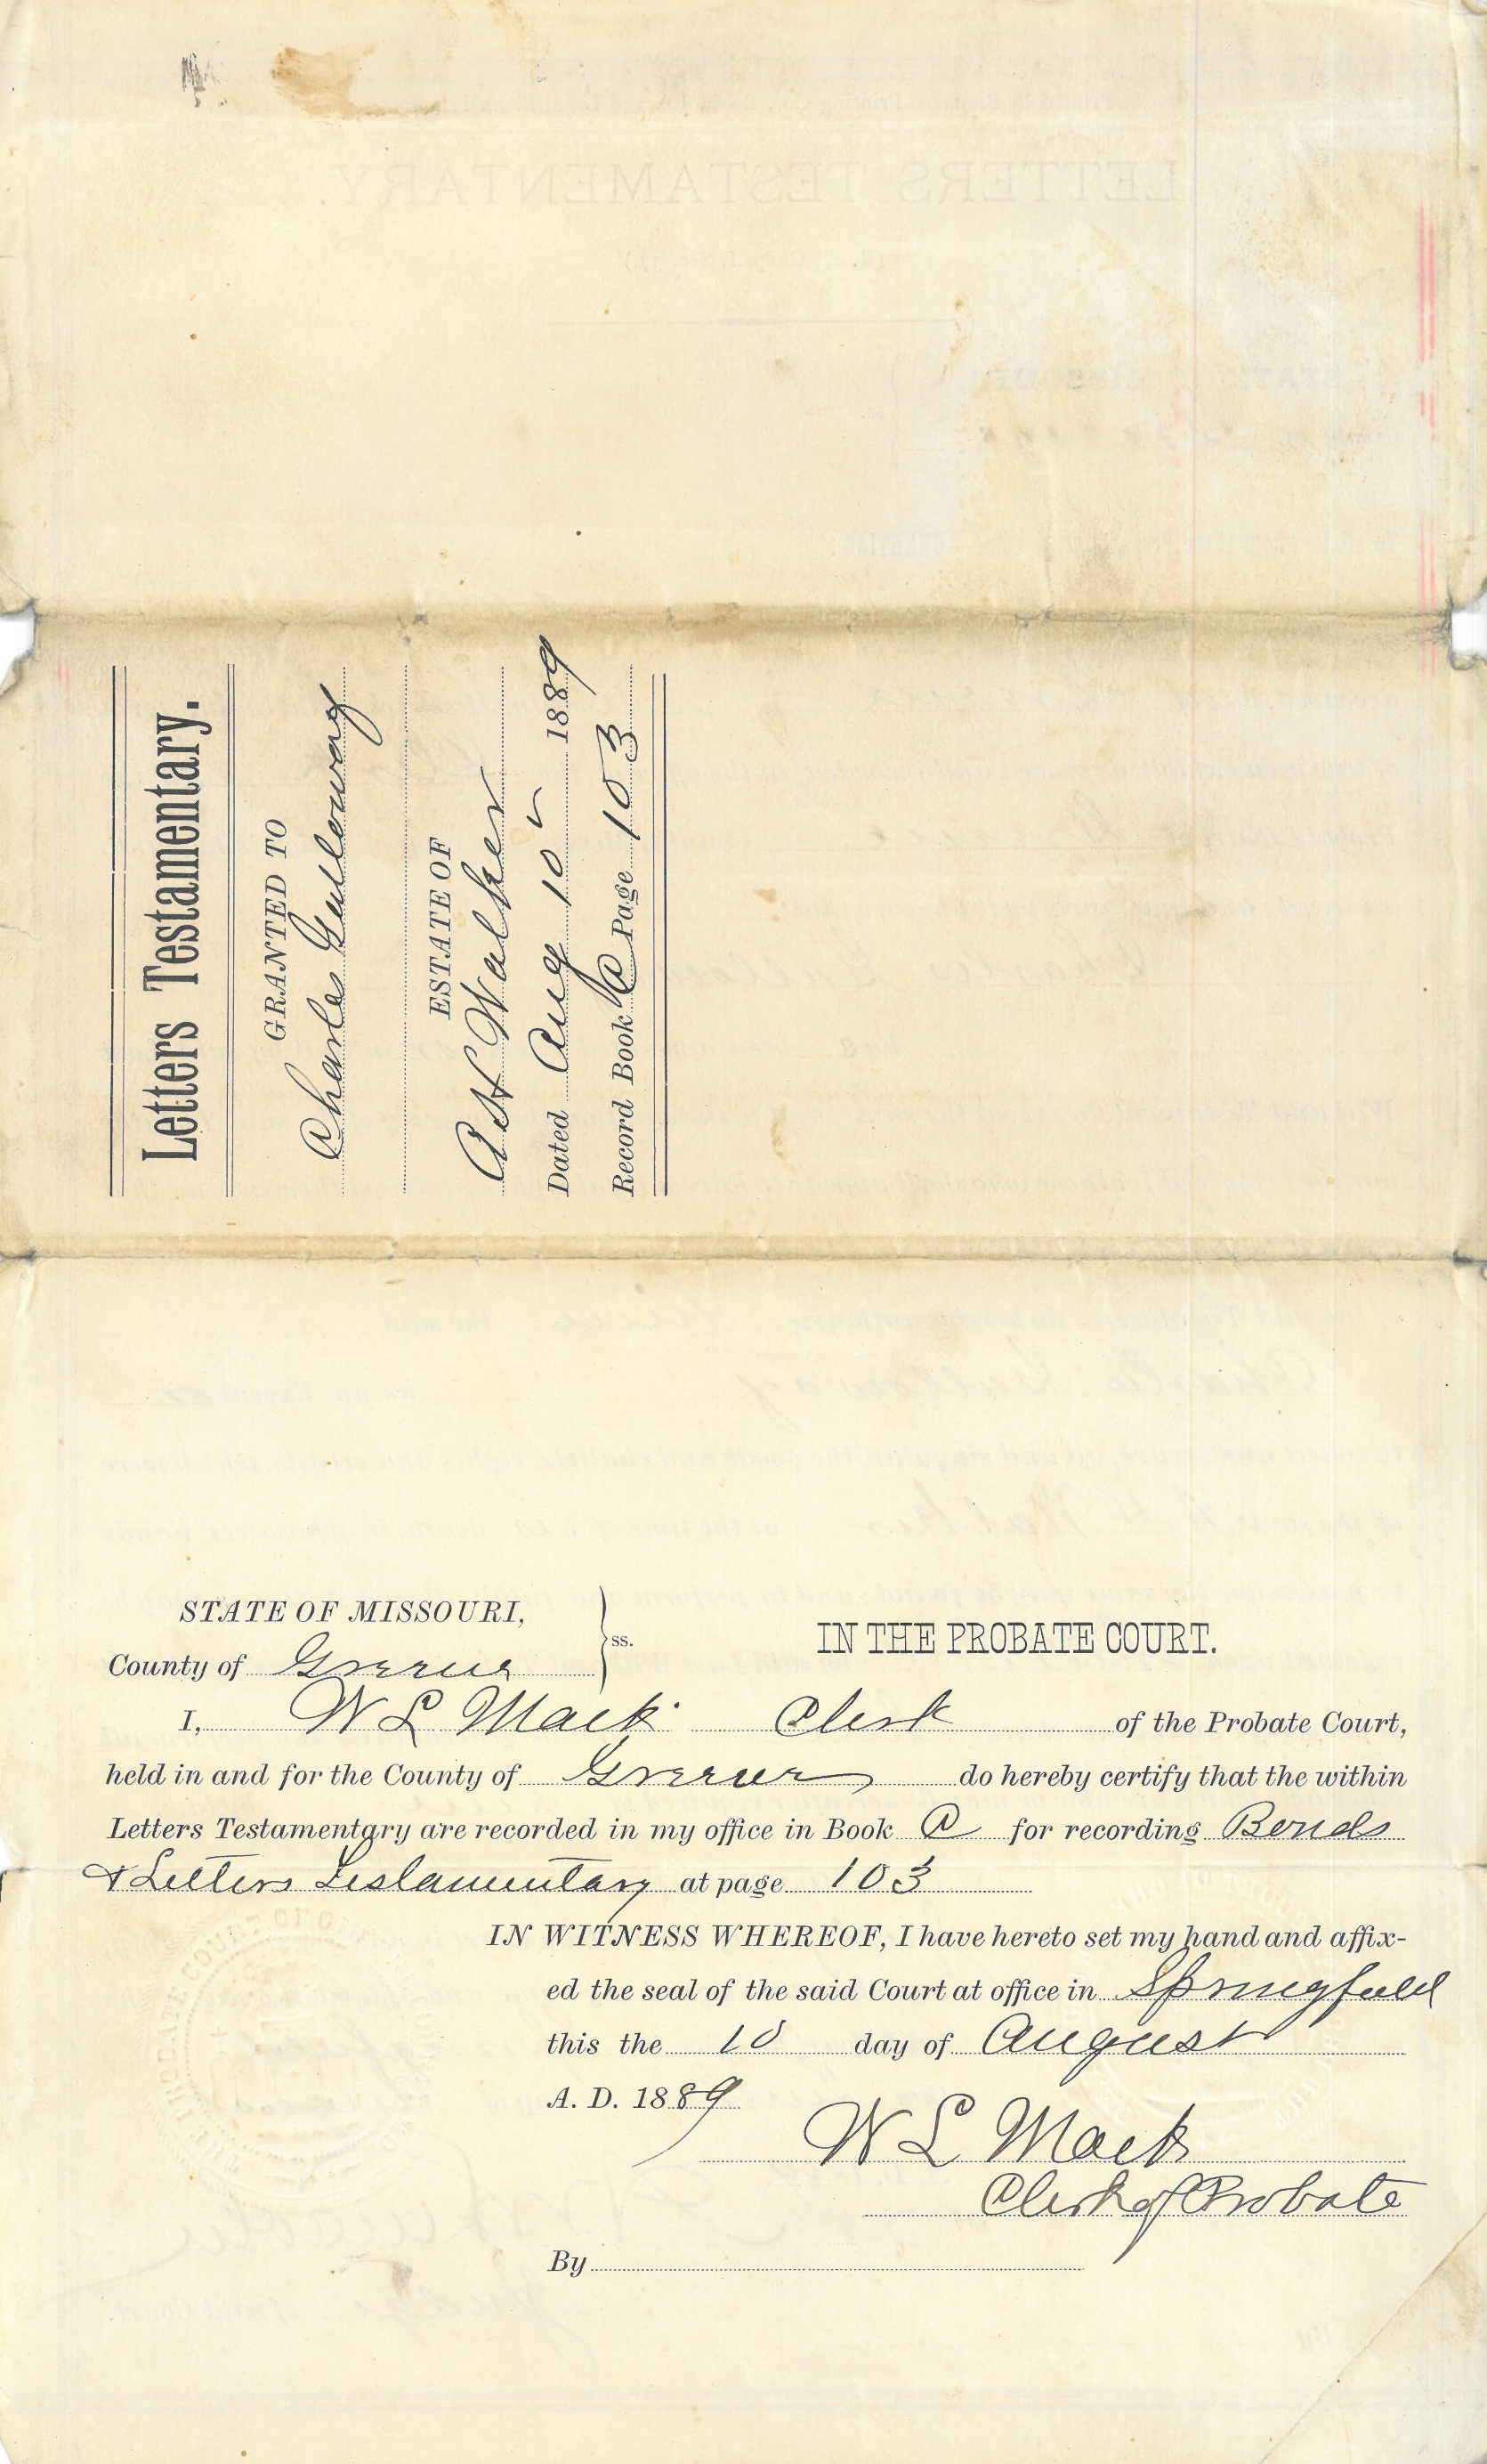 Letters Testamentary.
GRANTED TO
Charles Gallaway
ESTATE OF
A H Walker
Dated Aug 10 1889
Record Book C Page 103
STATE OF MISSOURI,
County of Greene
ss.
IN THE PROBATE COURT.
I, W L Mack Clerk of the Probate Court,
held in and for the County of Greene do hereby certify that the within
Letters Testamentary are recorded in my office in Book C for recording Bonds
& Letters Testamentary at page 103
IN WITNESS WHEREOF, I have hereto set my hand and affix-
ed the seal of the said Court at office in Springfield
this the 10 day of August
A. D. 1889
W L Mack
Clerk of Probate
By